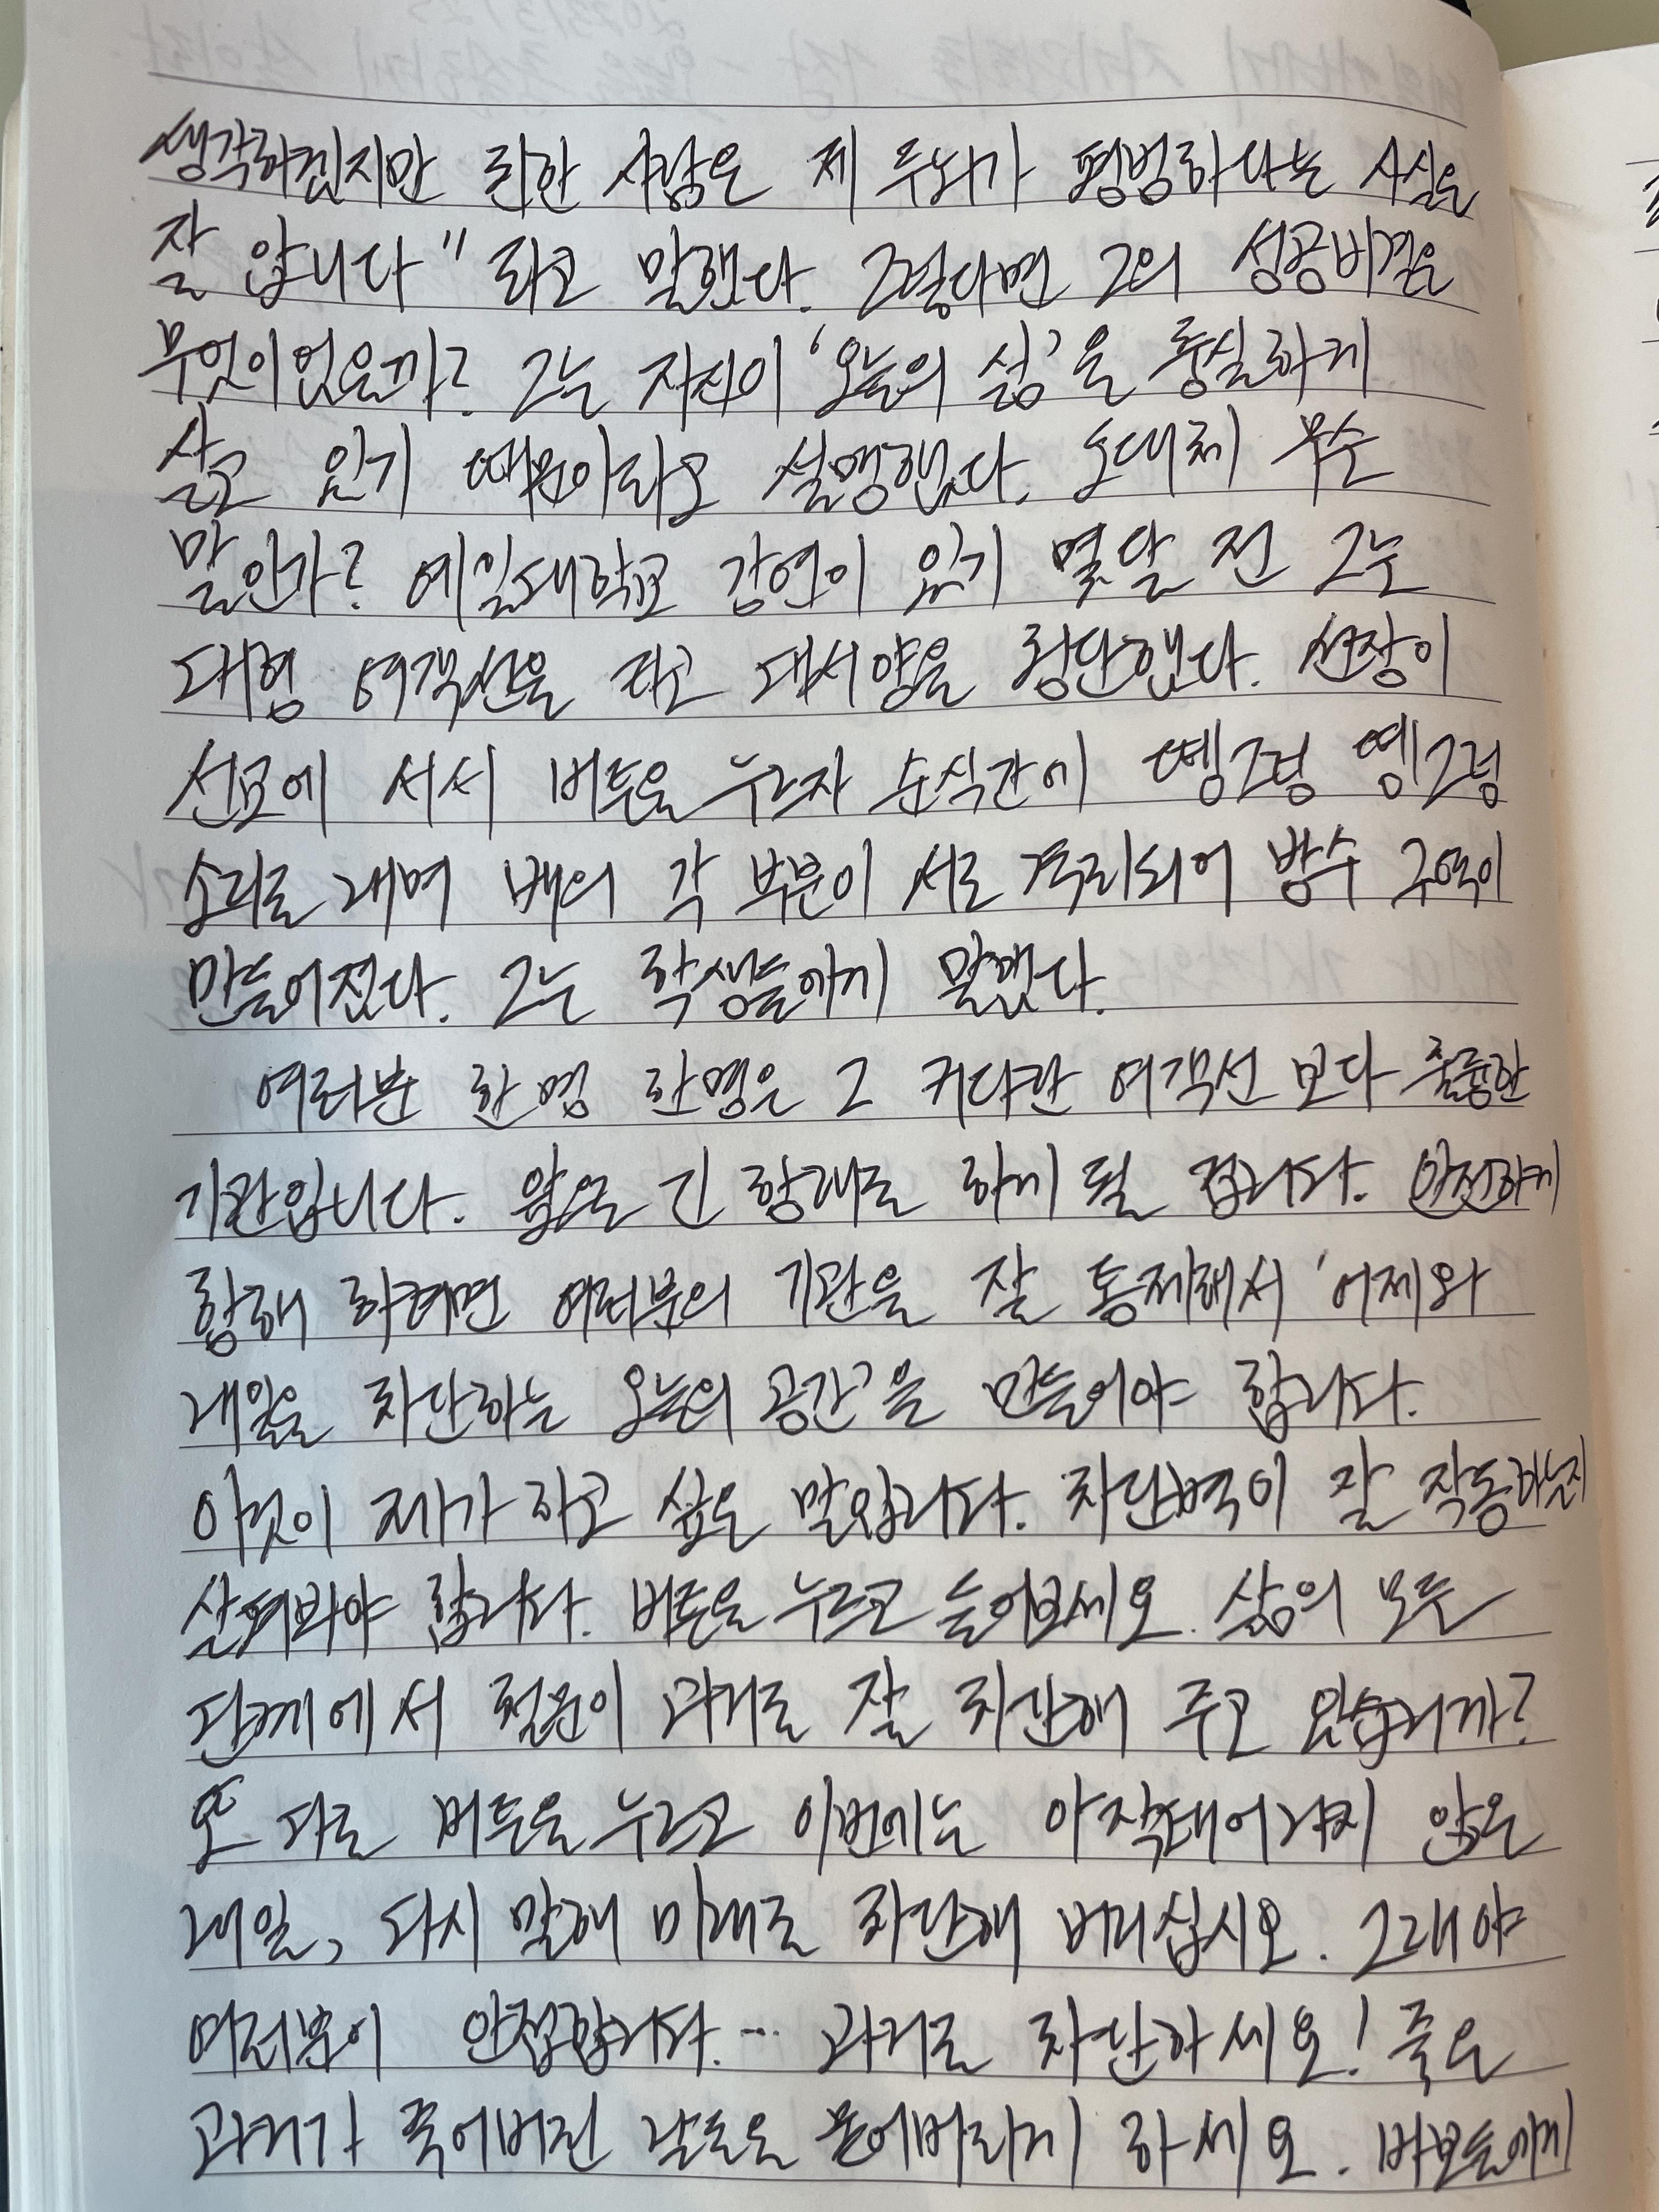 생각하겠지만 친한 사람은 제 두뇌가 평범하다는 사실을
잘 압니다" 라고 말했다. 그렇다면 그의 성공비결은
무엇이었을까? 그는 자신이 '오늘의 삶'을 충실하게
살고 있기 때문이라고 설명했다. 도대체 무슨
말인가? 예일대학교 강연이 있기 몇달 전 그는
대형 여객선을 타고 대서양을 횡단했다. 선장이
선교에 서서 버튼을 누르자 순식간에 뗑그렁 뗑그렁
소리를 내며 배의 각 부분이 서로 격리되어 방수 구역이
만들어졌다. 그는 학생들에게 말했다.
여러분 한 명 한명은 그 커다란 여객선 보다 훌륭한
기관입니다. 앞으로 긴 항해를 하게 될 겁니다. 안전하게
항해 하려면 여러분의 기관을 잘 통제해서 '어제와
내일을 차단하는 오늘의 공간'을 만들어야 합니다.
이것이 제가 하고 싶은 말입니다. 차단벽이 잘 작동하는지
살펴봐야 합니다. 버튼을 누르고 들어보세요. 삶의 모든
단계에서 철문이 과거를 잘 차단해 주고 있습니까?
또 다른 버튼을 누르고 이번에는 아직태어나지 않은
내일, 다시 말해 미래를 차단해 버리십시오. 그래야
여러분이 안전합니다. … 과거를 차단하세요! 죽은
과거가 죽어버린 날들을 묻어버리게 하세요. 바보들에게